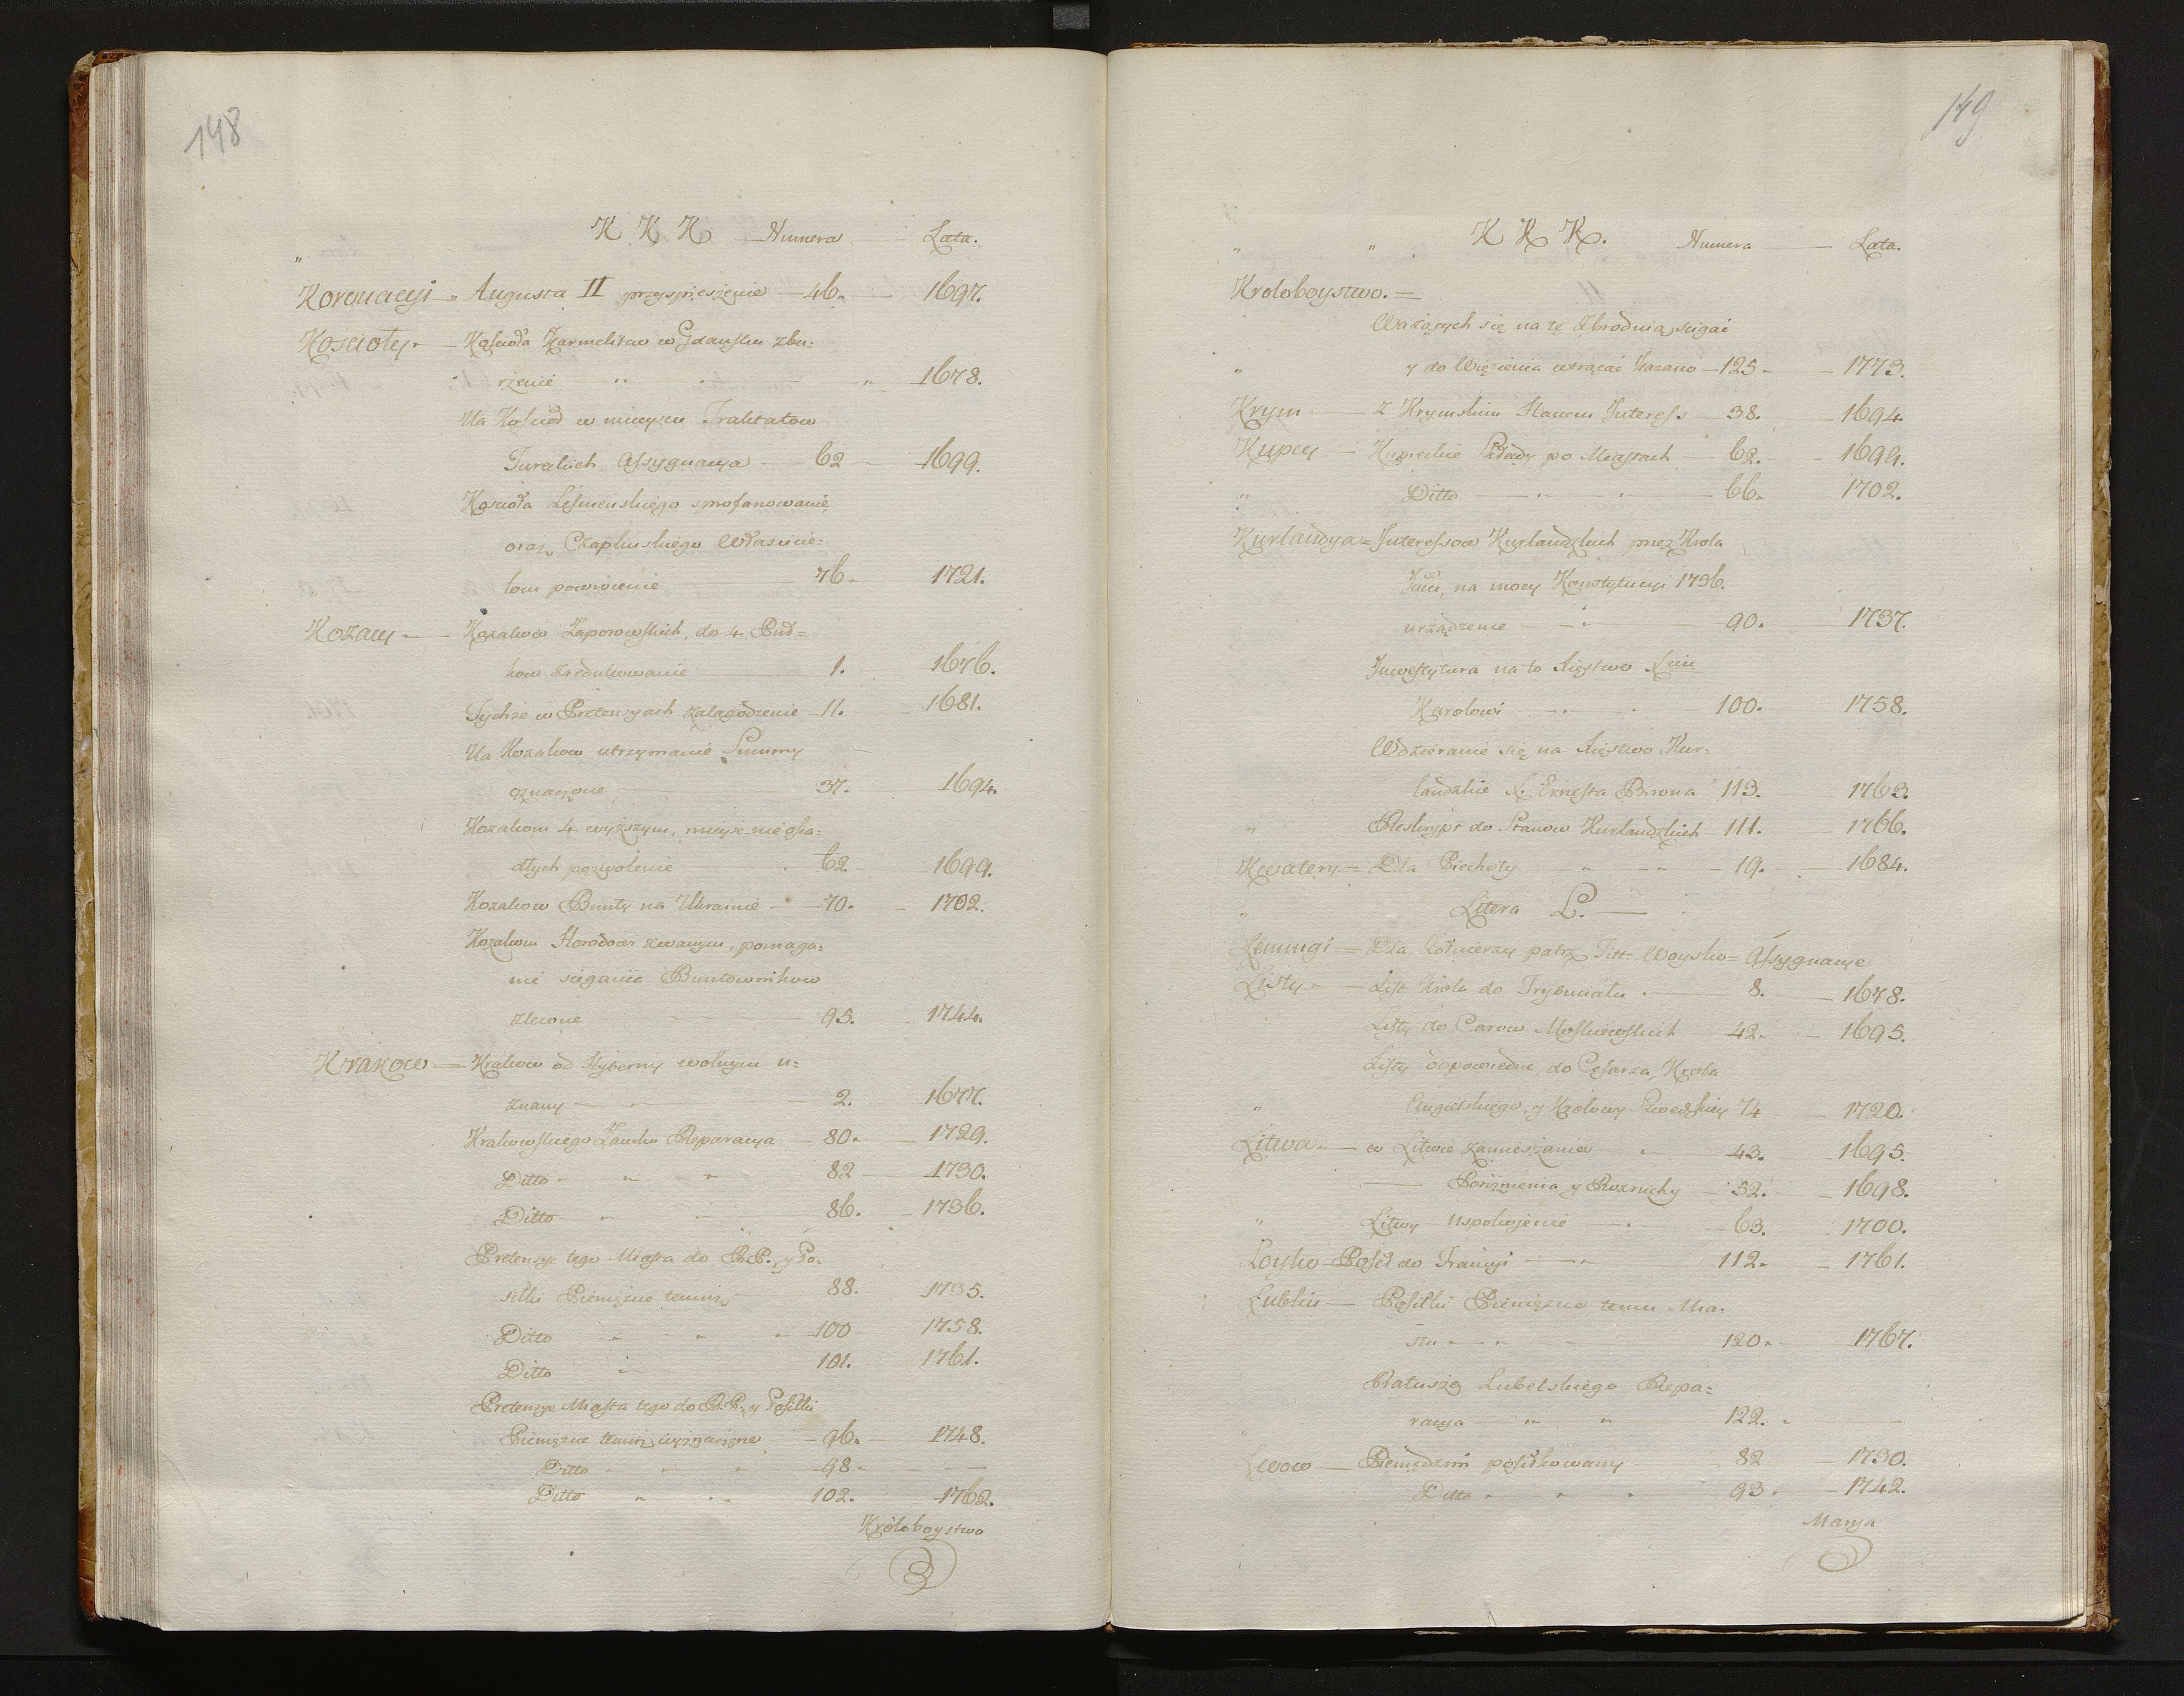 148
K K K — Numera — Lata.
Koronacyi — Augusta II przyspieszenie — 46. — 1697.
Kościoły — Kościoła Karmelitow w Gdansku zbu-
rzenie — 1678.
Na Kościoł w mieyscu Traktatow
Tureckich Assygnacya — 62 — 1699.
Kościoła Leśnienskiego sprofanowanie,
oraz Czaplinskiego Właścicie-
lom powrocenie — 76. 1721.
Kozacy — Kozakow Zaporowskich, do 4 Puł-
kow zredukowanie — 1. 1676.
Tychże w Pretensyach załagodzenie — 11. — 1681.
Na Kozakow utrzymanie Summy —
oznaczone — 37. — 1694.
Kozakom 4 wyższym, mieysc nieosia-
dłych pozwolenie — 62. — 1699.
Kozakow Bunty na Ukrainie — 70. — 1702.
Kozakom Horodowe zwanym, pomaga-
nie scigania Buntownikow
zlecone — 95. — 1744.
Krakow — Krakow od Hyberny wolnym u-
znany — 2. 1677.
Krakowskiego Zamku Reparacya — 80. — 1729.
Ditto — 82 — 1730.
Ditto — 86. — 1736.
Pretensye tego Miasta do R.P., y Po-
siłki Pieniężne temuż — 88. — 1735.
Ditto — 100 — 1758.
Ditto — 101. — 1761.
Pretensye Miasta tego do R.P. y Posiłki
Pieniężne temuż wyznaczone — 96. — 1748.
Ditto — 98 — —
Ditto — 102. — 1762.
Kròloboystwo
149
K K K. Numera — Lata.
Kroloboystwo. =
Ważących się na tę Zbrodnią scigać
y do Więzienia wtrącać kazano — 125 — 1773.
Krym — z Krymskim Hanem Interess — 38. — 1694.
Kupcy — Kupieckie Składy po Miastach — 62. — 1699.
Ditto — 66. — 1702.
Kurlandya = Interessow Kurlandzkich przez Krola
na mocy Konstytucyi 1736.
urządzenie — 90. — 1737.
Inwestytura na to Xięstwo Xciu
Karolowi — 100. — 1758.
Wdzieranie się na Xięstwo Kur-
landzkie X. Ernesta Birona 113. — 1763.
Reskrypt do Stanow Kurlandzkich — 111. — 1766.
Kwatery = Dla Piechoty — 19. — 1684.
Litera L. —
Lenungi — Dla Żołnierzy patrz Titt Woysko = Assygnacye
Listy — List Krola do Trybunału — 8. — 1678.
Listy do Carow Moskiewskich — 42. — 1695.
Listy odpowiedne, do Cesarza, Krola
Angielskiego, y Krolowy Szwedzkiey 74 — 1720.
Litwa — w Litwie zamieszania — 43. — 1695.
— Porożnienia y Rozruchy — 52. — 1698.
Litwy — Uspokojenie — 63. — 1700.
Łoyko — Poseł do Francyi — 112. — 1761.
Lublin — Posiłki Pieniężne temu Mia-
stu — 120. — 1767.
Ratusza Lubelskiego Repa-
racya — 122. —
Lwow — Pieniędzmi posiłkowany — 82 — 1730.
Ditto — 93. — 1742.
Marya